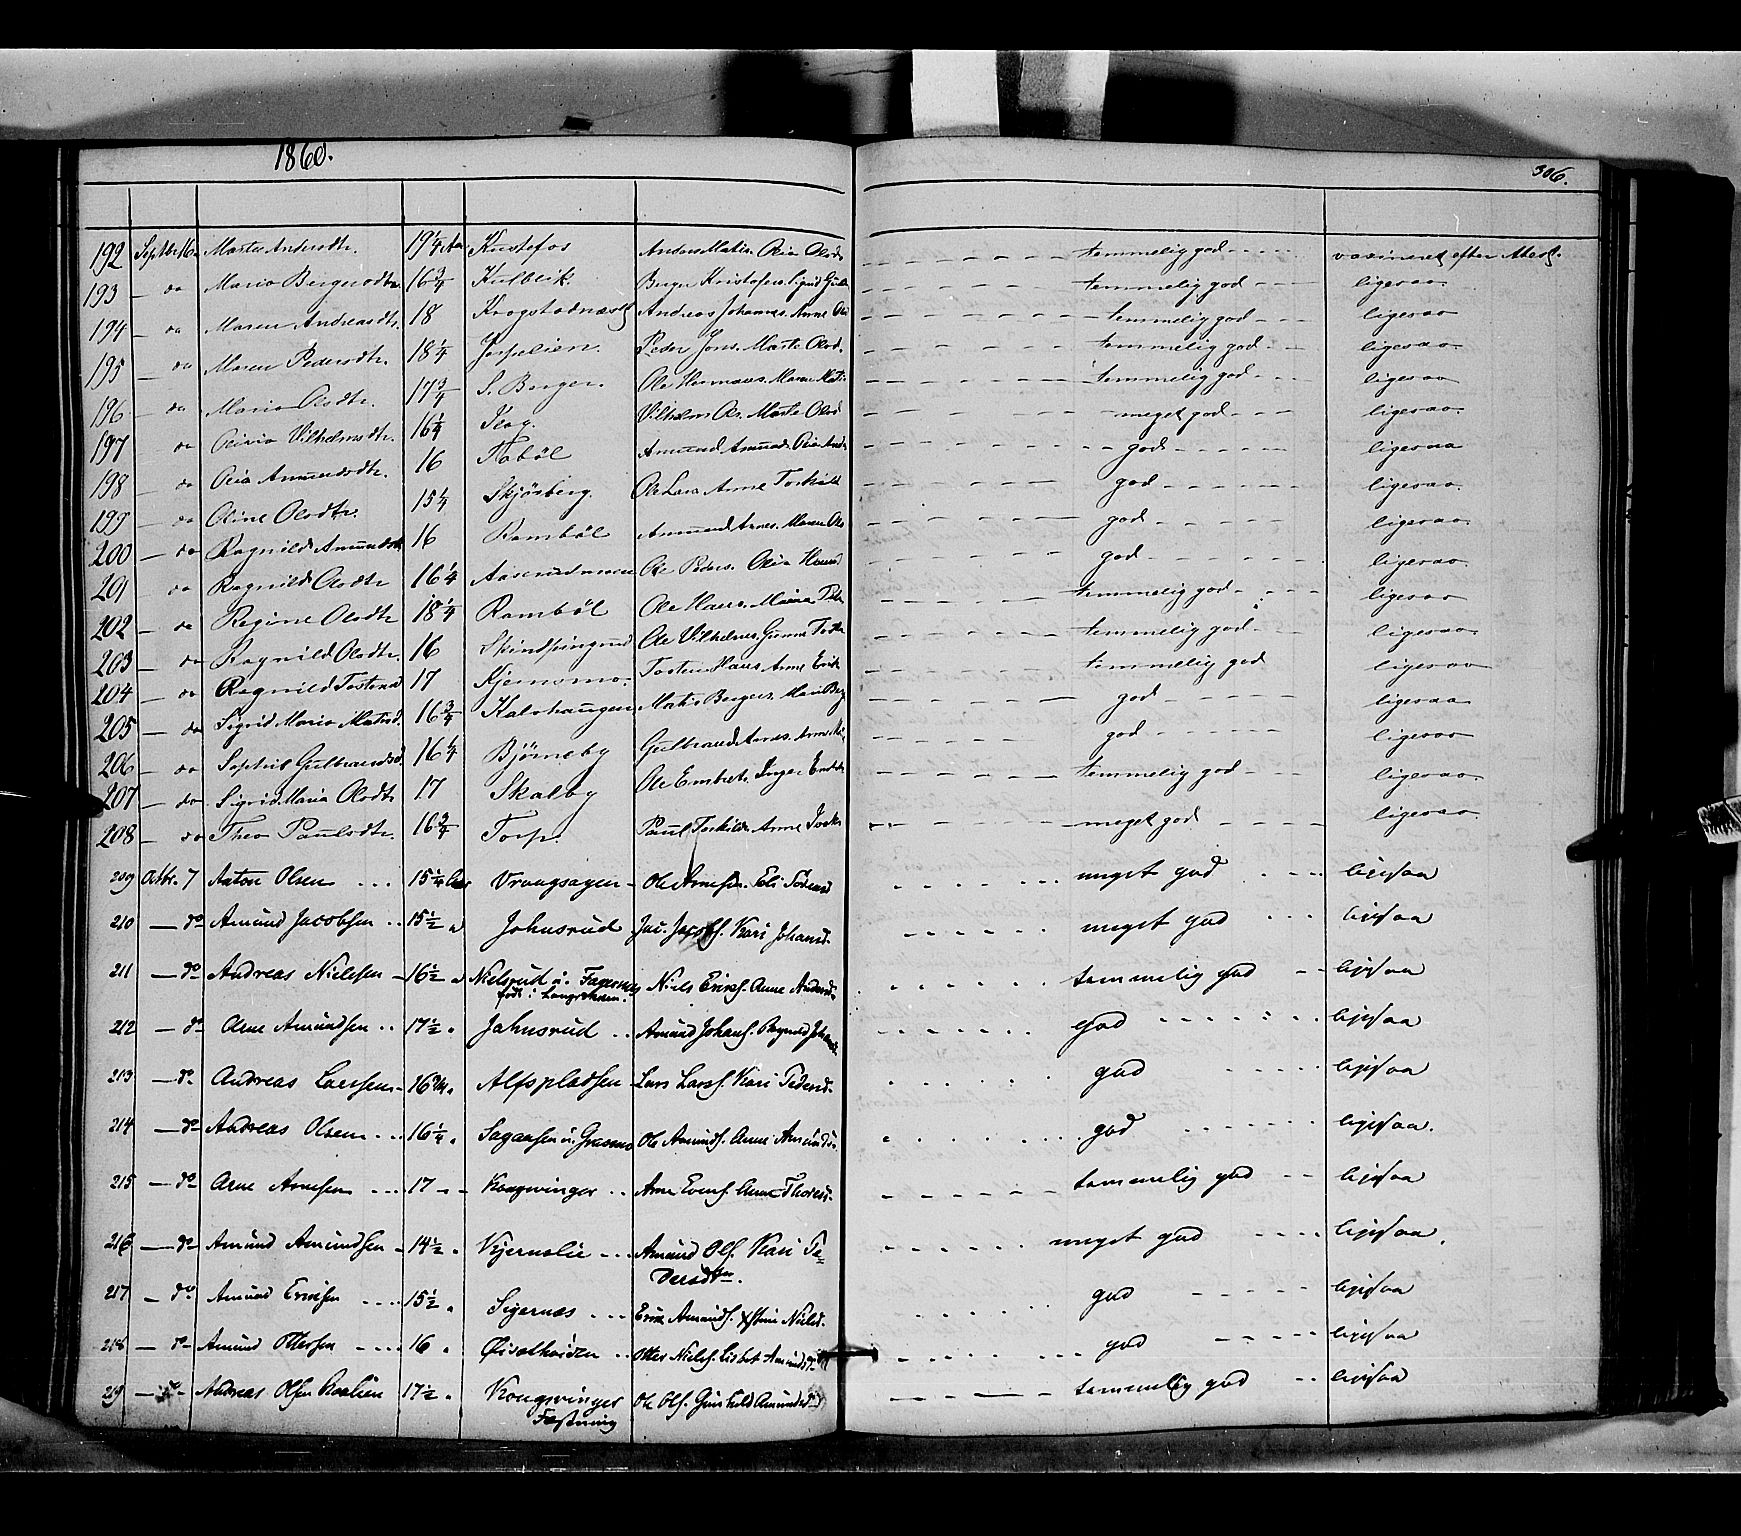 1860.
306.
192 Septbr 16. Marte Andersdtr. 19 1/4 Aar Anders Matis. Olia Olsd. temmelig god vaxineret efter Attest.
193 — do Maria Bergersdtr 16 3/4 Kulblik. Berger Kristofers. Sigrid Gulb temmelig god ligesaa
194 — do Maren Andreasdtr. 18 Krogstadnæstb Andreas Johannes. Anne Ols temmelig god ligesaa
195 — do Maren Pedersdtr. 18 1/4 Peder Jons. Marte Olsd. temmelig god ligesaa
196 — do Maria Olsdtr. 17 3/4 S. Berger. Ole Hermans. Maren Mati temmelig god ligesaa
197 — do Olivia Vilhelmsdtr. 16 1/4 Vilhelm Ols. Marte Olsd meget god ligesaa
198 — do Olia Amundsdtr. 16 Tobøl Amund Amunds. Olia Ands god ligesaa
199 — do Oline Olsdtr. 15 1/4 Skjøsberg. Ole Lars. Anne Torkild god ligesaa
200 — do Ragnild Amundsdtr 16 Rambøl Amund Arnes. Maren Ols god ligesaa
201 — do Ragnild Olsdtr 16 1/4 Aaserudmoen Ole Peders. Olia god ligesaa
202 — do Regine Olsdtr 18 1/4 Rambøl Ole Hans. temmelig god ligesaa
203 — do Ragnild Olsdtr. 16 Ole Vilhelms. temmelig god ligesaa
204 — do Ragnild Tostensd 17 Kjernsmo. Tosten Hans. Anne Erik temmelig god ligesaa
205 — do Sigrid Maria Matisd. 16 3/4 Kalvhaugen Matis Bergers. Mari Berg god ligesaa
206 — do Sophie Gulbrandsd 16 1/4 Bjørneby Gulbrand Arnes. god ligesaa
207 — do Sigrid Maria Olsdtr 17 Skalby Ole Embrets. Inger temmelig god ligesaa
208 — do Thea Paulsdtr. 16 3/4 Torp. Paul Torkilds. Anne meget god ligesaa
209 Octbr. 7 Anton Olsen 15 1/4 Aar Vrangsagen Ole Arnesen. meget god ligesaa
210 — do Amund Jacobsen 15 1/2 " Johnsrud Jac. Jacobs. Kari Johansd. meget god ligesaa
211 — do Andreas Nielsen 16 1/2 " Nielsrud u. Fagernes Niels Eriks. Anne Andersd. temmelig god ligesaa
født i
212 — do Arne Amundsen 17 1/2 " Johnsrud Amund Johans. Ragnild god ligesaa
213 — do Andreas Larssen 16 3/4 " Alfspladsen Lars Larss. Kari Pedersd. god ligesaa
214 — do Andreas Olsen 16 1/4 " Sagaasen u. Ole Amunds. Anne Amundsd. god ligesaa.
215 — do Arne Arnesen 17 " Kongsvinger Arne Evens. Anne Thoresd. temmelig god ligesaa
216 — do Amund Amundsen 14 1/2 " Kjernslie Amund Ols. Kari Pe- meget god ligesaa.
dersdtr.
217 — do Amund Eriksen 15 1/2 " Sigernæs Erik Amunds. Nielsd. god ligesaa
218 — do Amund Ottersen 16 " Otter Niels. Lisbet Amundsd. god ligesaa
219 — do Andreas Olsen 17 1/2 " Kongsvinger Ole Ols. Gunhild Amundsd. temmelig god ligesaa
Fæstning